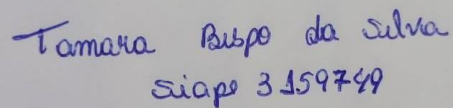 Tamara Bispo da Silva
Siape 3159749